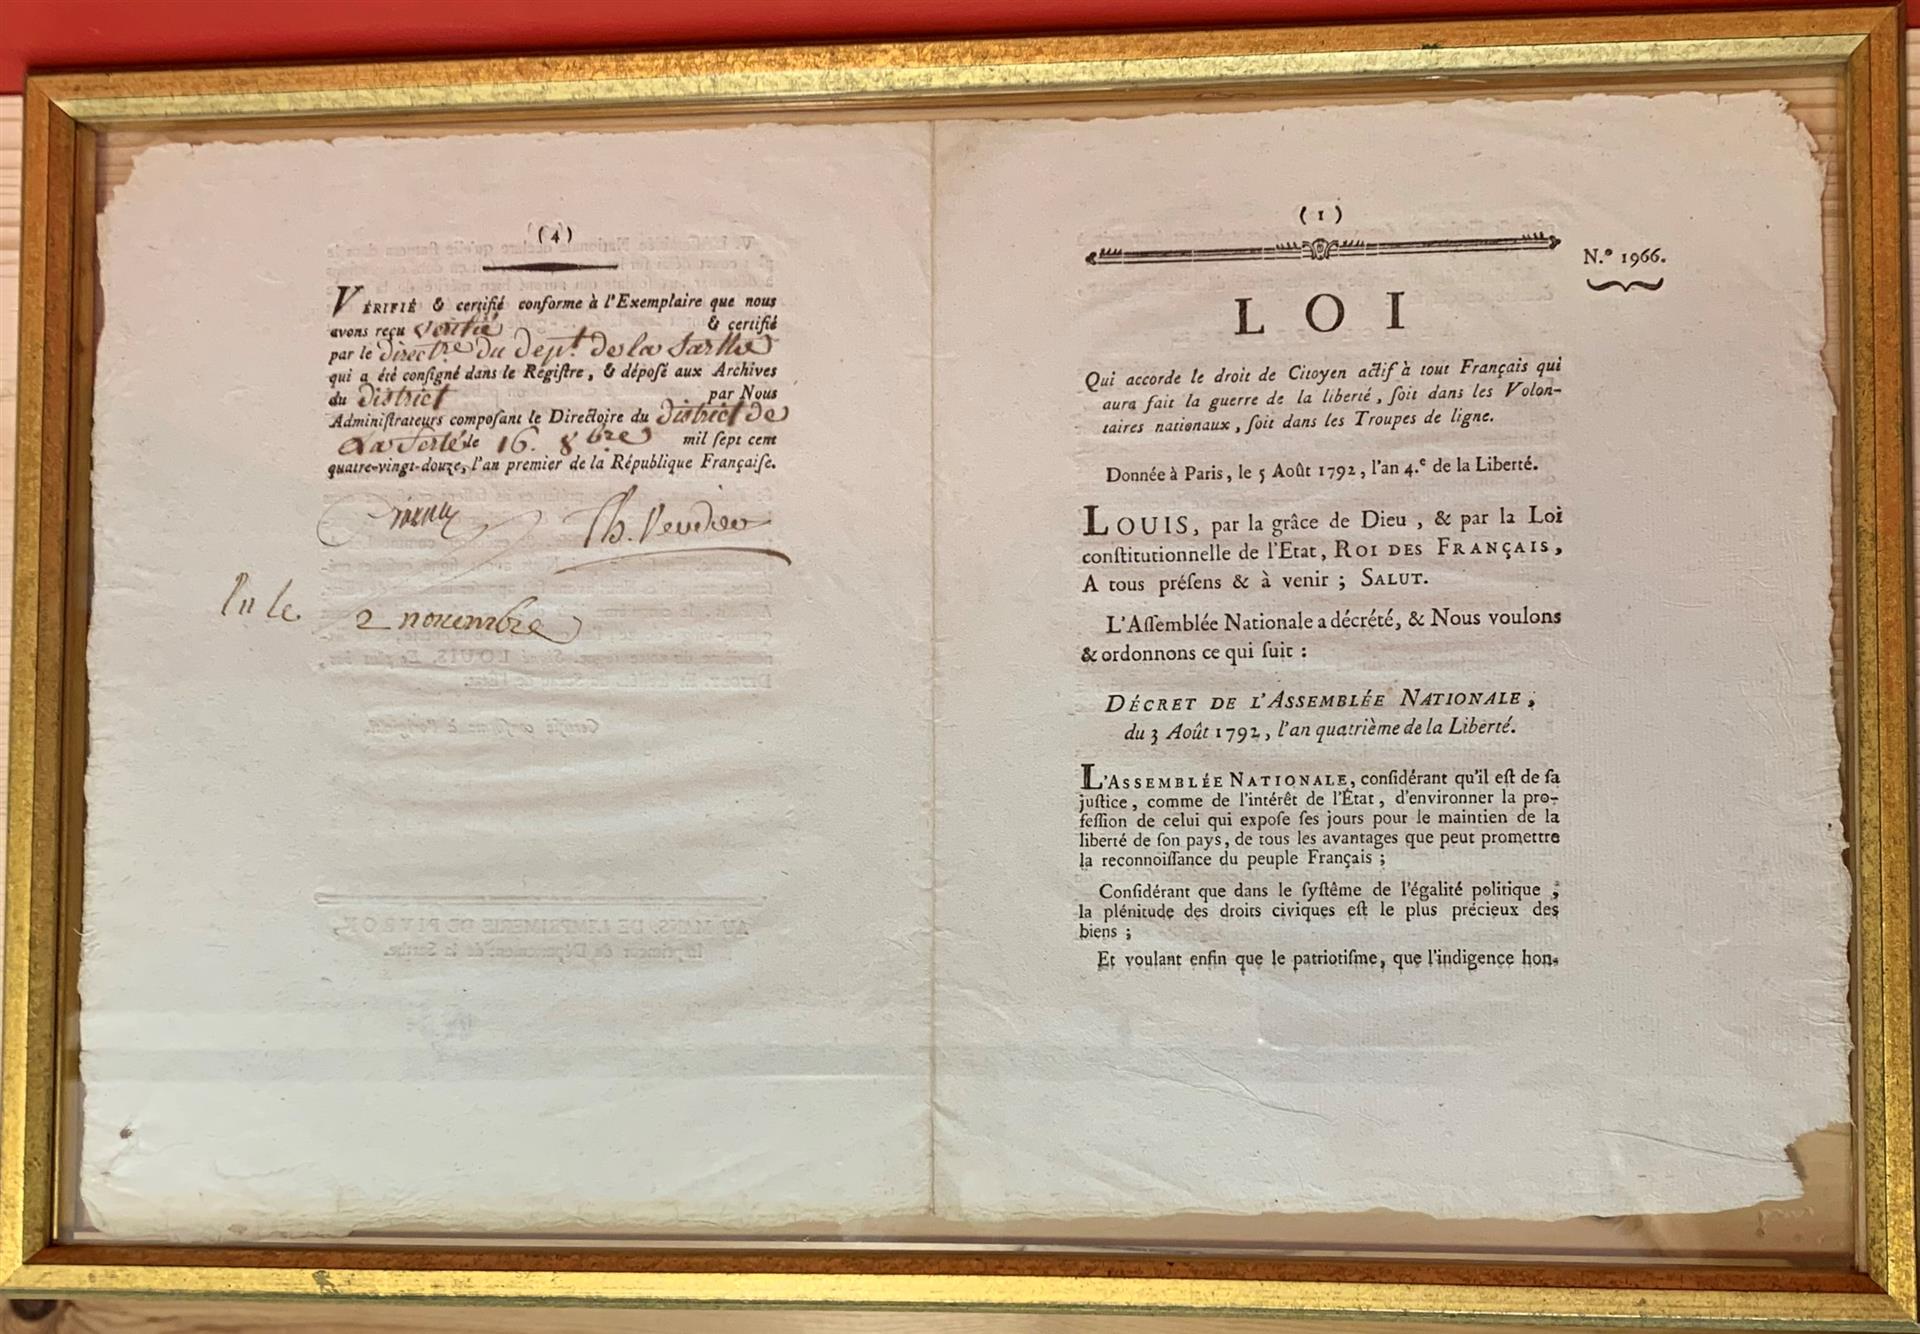 (4)
VÉRIFIÉ & certifié conforme à l'Exemplaire que nous
avons reçu vérifié & certifié
par le direct.re du dept. de la Sarthe
qui a été conſigné dans le Régiſtre, & dépoſé aux Archives
du district par Nous
Adminiſtrateurs compoſant le Directoire du district de
La ferté le 16. 8bre mil ſept cent
quatre-vingt-douze, l'an premier de la République Françaiſe.
Th. Verdier
lu le 2 novembre
(1)
N.º 1966.
LOI
Qui accorde le droit de Citoyen actif à tout Français qui
aura fait la guerre de la liberté, ſoit dans les Volon-
taires nationaux, ſoit dans les Troupes de ligne.
Donnée à Paris, le 5 Août 1792, l'an 4.e de la Liberté.
LOUIS, par la grâce de Dieu, & par la Loi
conſtitutionnelle de l'Etat, ROI DES FRANÇAIS,
A tous préſens & à venir ; SALUT.
L'Aſſemblée Nationale a décrété, & Nous voulons
& ordonnons ce qui ſuit :
DÉCRET DE L'ASSEMBLÉE NATIONALE,
du 3 Août 1792, l'an quatrième de la Liberté.
L'ASSEMBLÉE NATIONALE, conſidérant qu'il eſt de ſa
juſtice, comme de l'intérêt de l'État, d'environner la pro-
feſſion de celui qui expoſe ſes jours pour le maintien de la
liberté de ſon pays, de tous les avantages que peut promettre
la reconnoiſſance du peuple Français ;
Conſidérant que dans le ſyſtême de l'égalité politique,
la plénitude des droits civiques eſt le plus précieux des
biens ;
Et voulant enfin que le patriotiſme, que l'indigence hon-